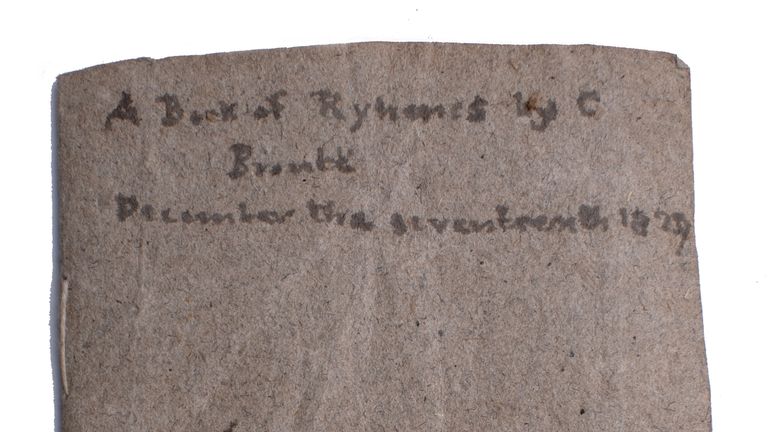 A Book of Ryhmes by C
Brontë
December the seventeenth 1829